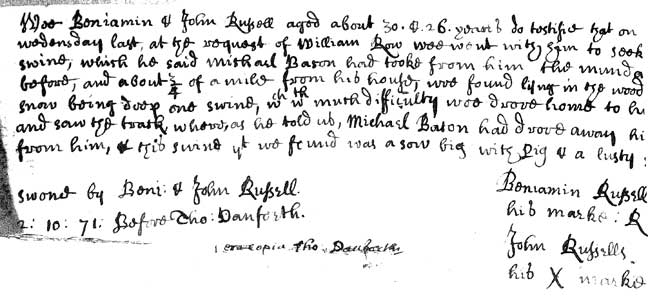 Wee Beniamin & John Russell aged about 30. & 26. years do testifie that on
wedensday last, at the request of William Row wee went with him to seek
swine, which he said Michaell Bacon had tooke from him the munday
before, and about 3/4 of a mile from his house, wee found lying in the wood
snow being deep one swine, wch wth much difficulty wee drove home to
and saw the track, where, as he told us, Michael Bacon had drove away
from him, & this swine yt we found was a sow big with Pig & a lusty
swone by Beni: & John Russell.
2: 10: 71. Before Tho: Danforth.
vera copia Tho. Danforth
Beniamin Russell
his marke: R
John Russells
his X marke